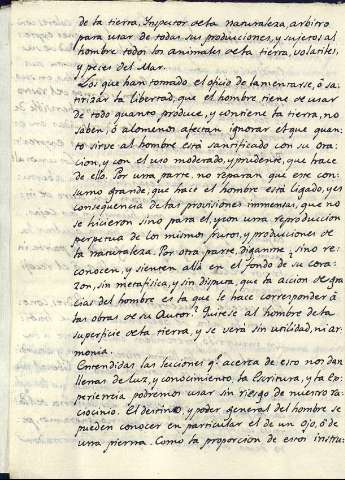 de la tierra, Inspector de la naturaleza, arbitro
para usar de todas sus producciones, y sujetos al
hombre todos los animales de la tierra, volatiles,
y peces del Mar.
Los que han tomado el oficio de lamentarse, ó sa-
tirizar la libertad, que el hombre tiene de usar
de todo quanto produce, y contiene la tierra, no
saben, ó alomenos afectan ignorar el que quan-
to sirve al hombre está santificado con su ora-
cion, y con el uso moderado, y prudente, que hace
de ello. Por una parte, no reparan que ese con-
sumo grande, que hace el hombre está ligado, y es
consequencia de las provisiones immensas, que no
se hicieron sino para el, y con una reproduccion
perpetua de los mismos frutos, y producciones de
la naturaleza. Por otra parte, diganme, sino re-
conocen, y sienten allá en el fondo de su cora-
zon, sin metafisica, y sin disputa, que la accion de gra-
cias del hombre es la que le hace corresponder á
las obras de su Autor? Quitese al hombre de la
superficie de la tierra, y se verá sin utilidad, ni ar-
monia.
Entendidas las lecciones q.e acerca de esto nos dan
llenas de luz, y conocimiento, la Escritura, y la Ex-
periencia podremos usar sin riesgo de nuestro ra-
ciocinio. El destino, y poder general del hombre se
pueden conocer en particular el de un ojo, ó de
una pierna. Como la proporcion de estos instru-